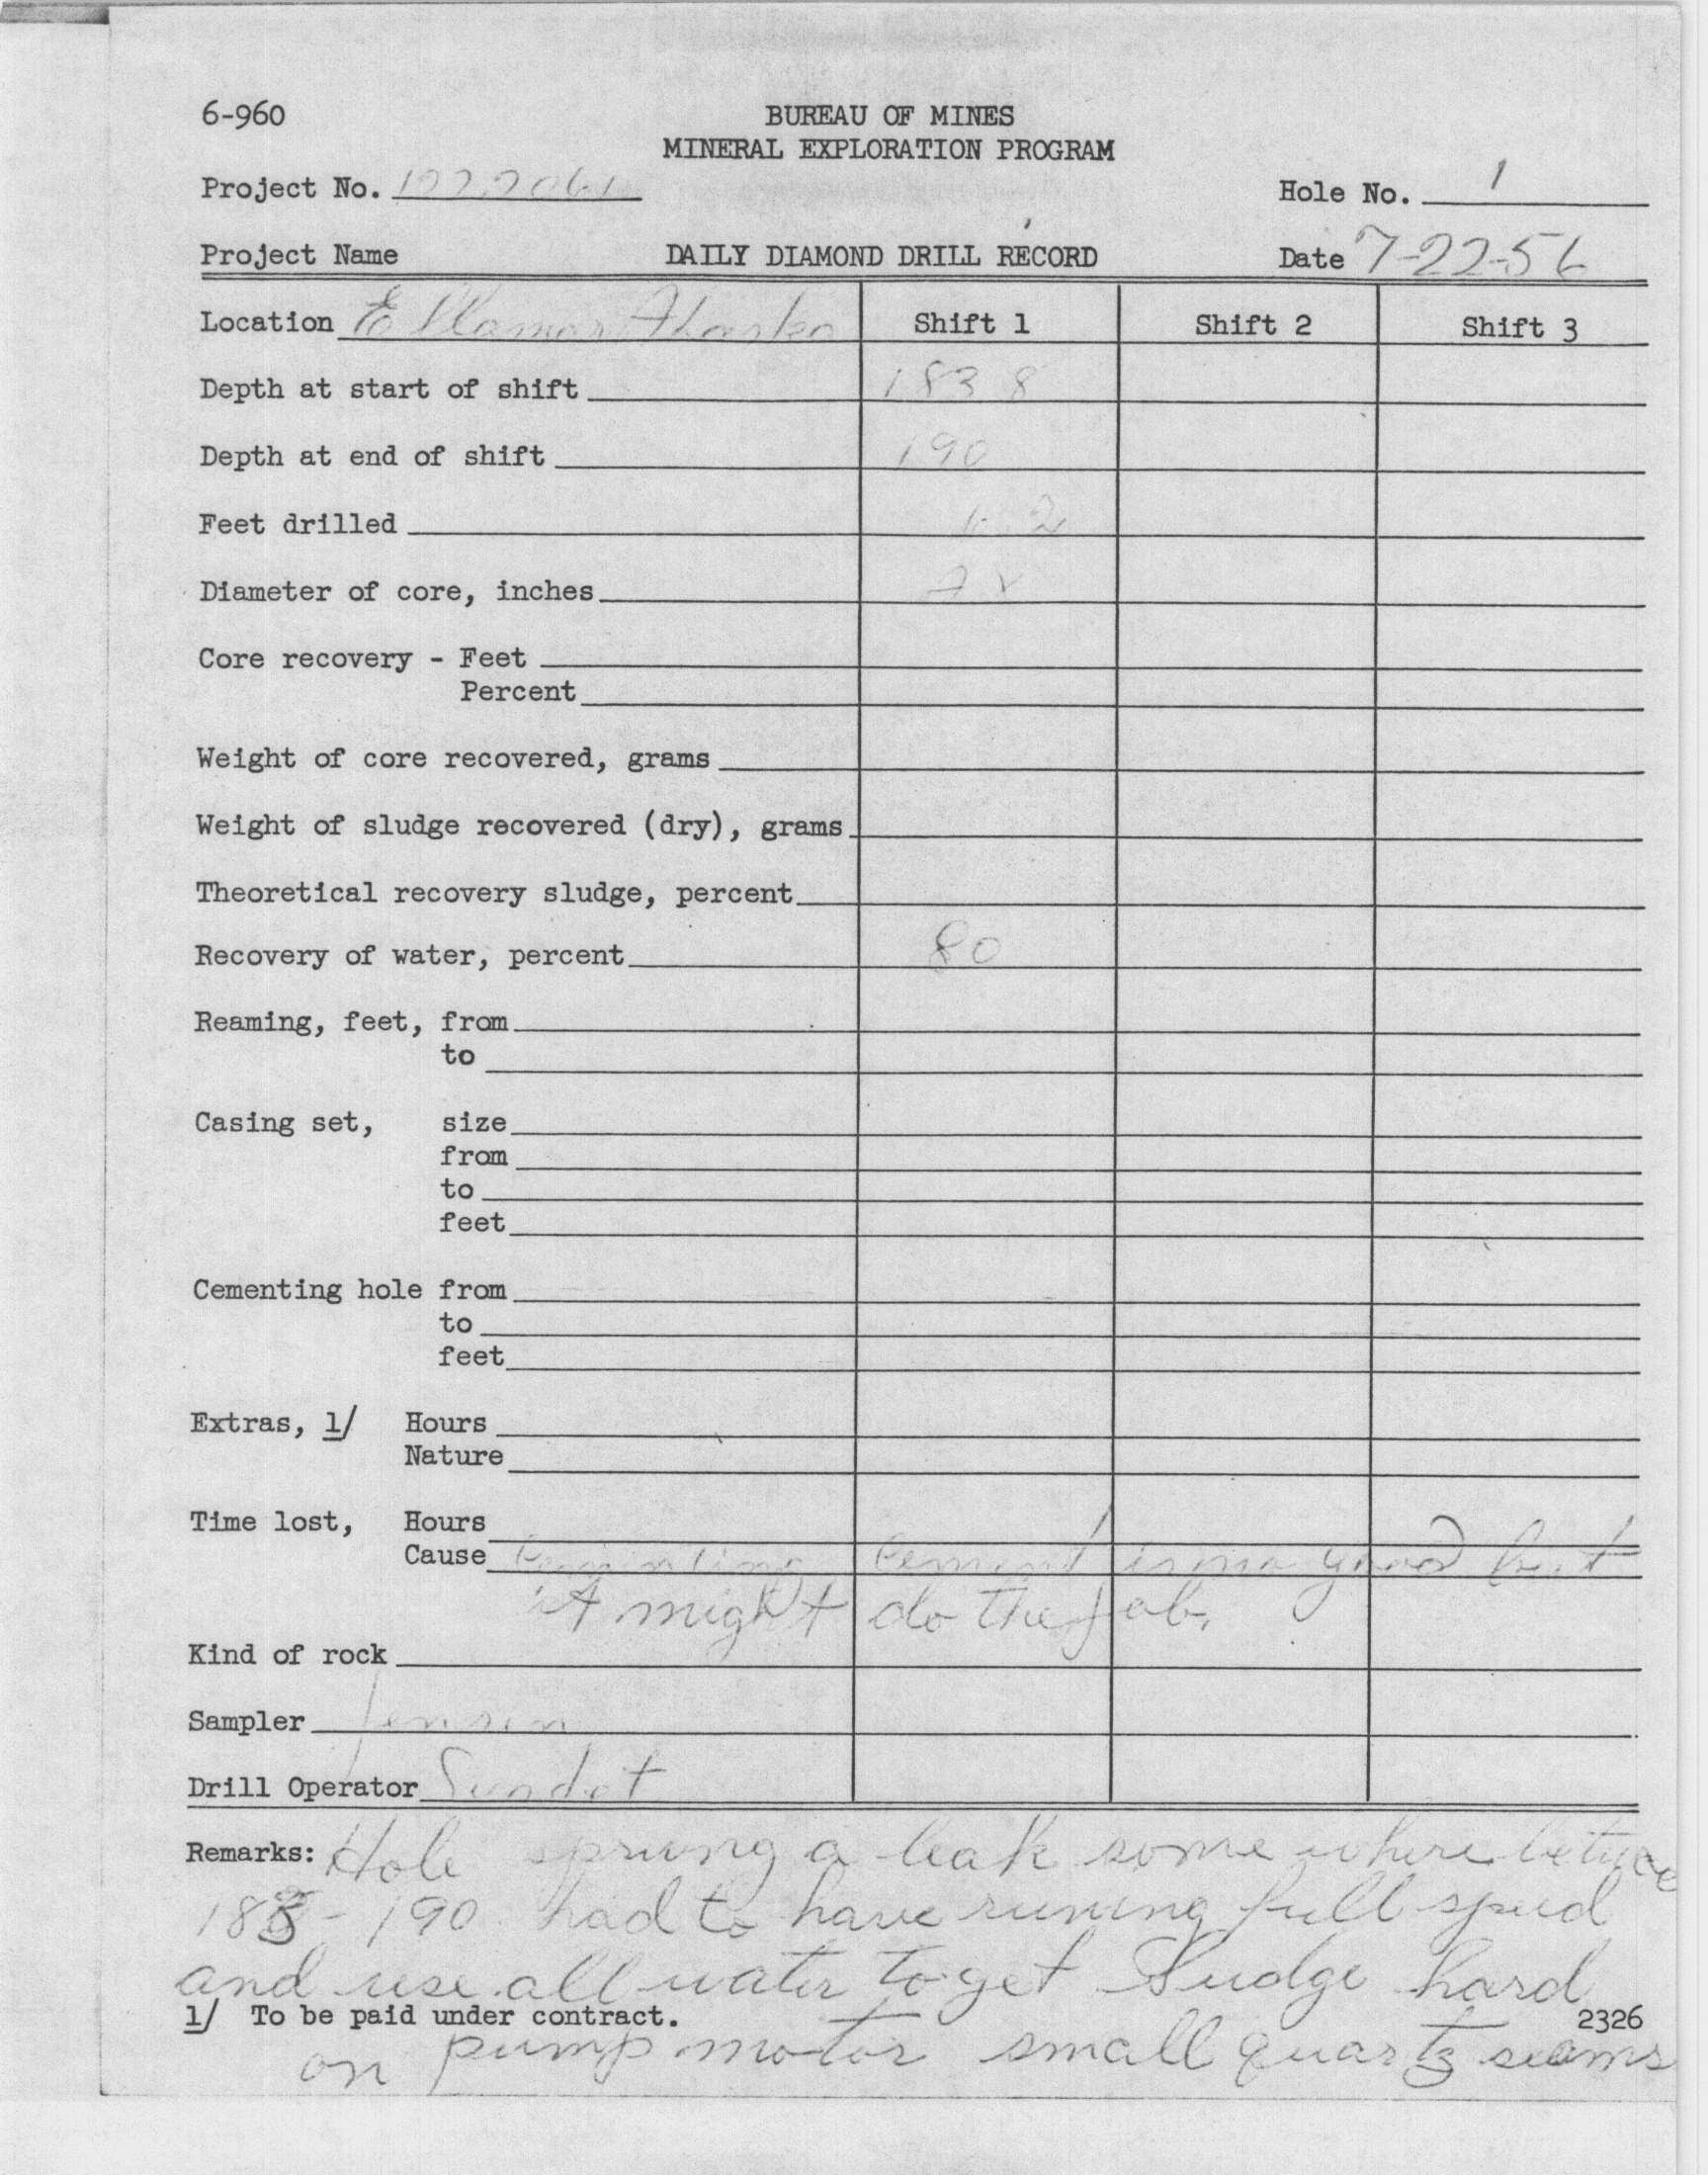 6-960 BUREAU OF MINES
MINERAL EXPLORATION PROGRAM
Project No. Hole No. 1
Project Name DAILY DIAMOND DRILL RECORD Date 7-22-56
Location Ellamar Alaska Shift 1 Shift 2 Shift 3
Depth at start of shift 183 8
Depth at end of shift 190
Feet drilled
Diameter of core, inches
Core recovery - Feet
Percent
Weight of core recovered, grams
Weight of sludge recovered (dry), grams
Theoretical recovery sludge, percent
Recovery of water, percent 80
Reaming, feet, from
to
Casing set, size
from
to
feet
Cementing hole from
to
feet
Extras, 1/ Hours
Nature
Time lost, Hours
Cause Cementing Cement is no good but
it might do the job.
Kind of rock
Sampler Jensen
Drill Operator Sundet
Remarks: Hole sprung a leak some where betwee
188 - 190 had to have runing full speed
and use all water to get Sludge hard
1/ To be paid under contract. 2326
on pump motor small quartz seams